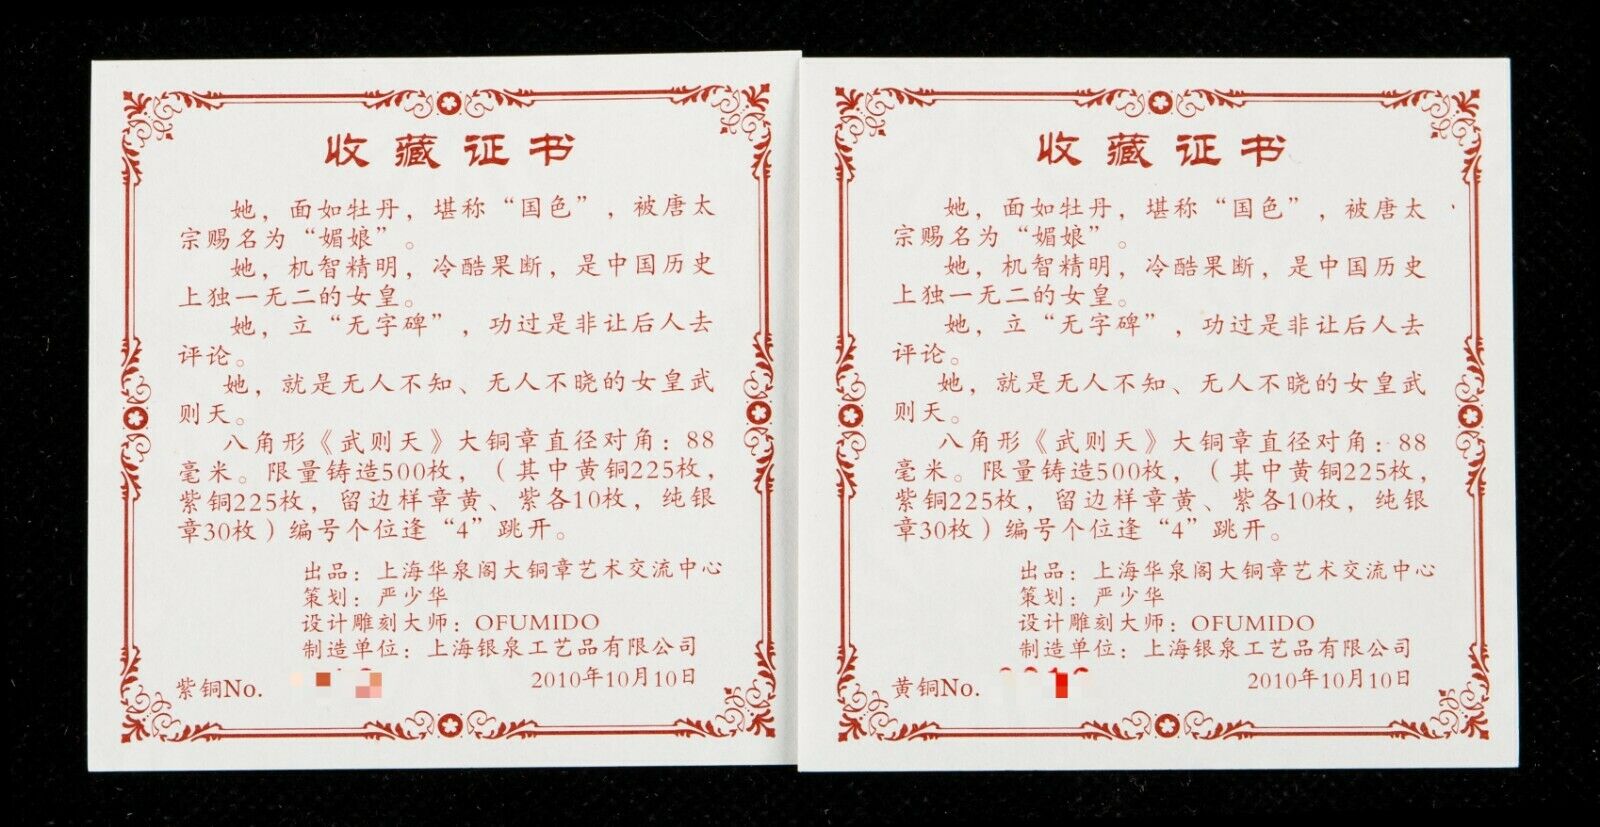 收藏证书
她，面如牡丹，堪称“国色”，被唐太
宗赐名为“媚娘”。
她，机智精明，冷酷果断，是中国历史
上独一无二的女皇。
她，立“无字碑”，功过是非让后人去
评论。
她，就是无人不知、无人不晓的女皇武
则天。
八角形《武则天》大铜章直径对角：88
毫米。限量铸造500枚，（其中黄铜225枚，
紫铜225枚，留边样章黄、紫各10枚，纯银
章30枚）编号个位逢“4”跳开。
出品：上海华泉阁大铜章艺术交流中心
策划：严少华
设计雕刻大师：OFUMIDO
制造单位：上海银泉工艺品有限公司
紫铜No.
2010年10月10日
收藏证书
她，面如牡丹，堪称“国色”，被唐太
宗赐名为“媚娘”。
她，机智精明，冷酷果断，是中国历史
上独一无二的女皇。
她，立“无字碑”，功过是非让后人去
评论。
她，就是无人不知、无人不晓的女皇武
则天。
八角形《武则天》大铜章直径对角：88
毫米。限量铸造500枚，（其中黄铜225枚，
紫铜225枚，留边样章黄、紫各10枚，纯银
章30枚）编号个位逢“4”跳开。
出品：上海华泉阁大铜章艺术交流中心
策划：严少华
设计雕刻大师：OFUMIDO
制造单位：上海银泉工艺品有限公司
黄铜No.
2010年10月10日